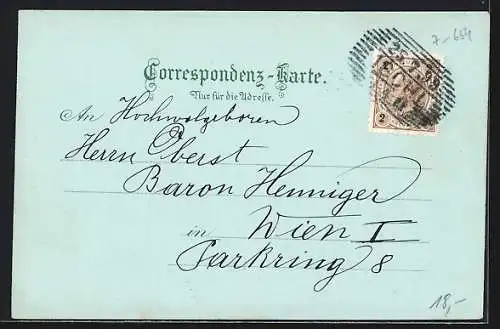 7-684
Correspondenz-Karte.
Nur für die Adresse.
An Hochwolgeboren
Herrn Oberst
Baron Henniger
in Wien I
Parkring 8
2
18,-